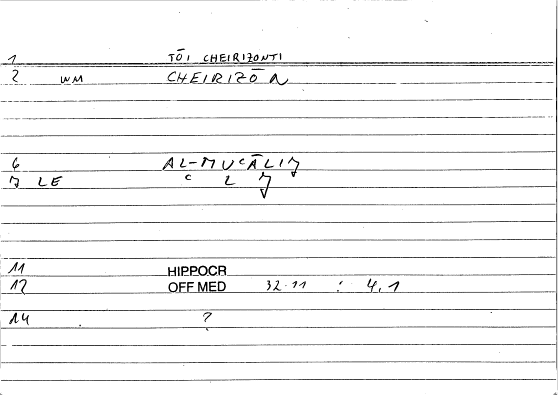 1 TŌI CHEIRIZONTI
2 WM CHEIRIZŌN
6 AL-MUʿĀLIǦ
7 LE ʿ L Ǧ
11 HIPPOCR
12 OFF MED 32.11 : 4,1
14 ?